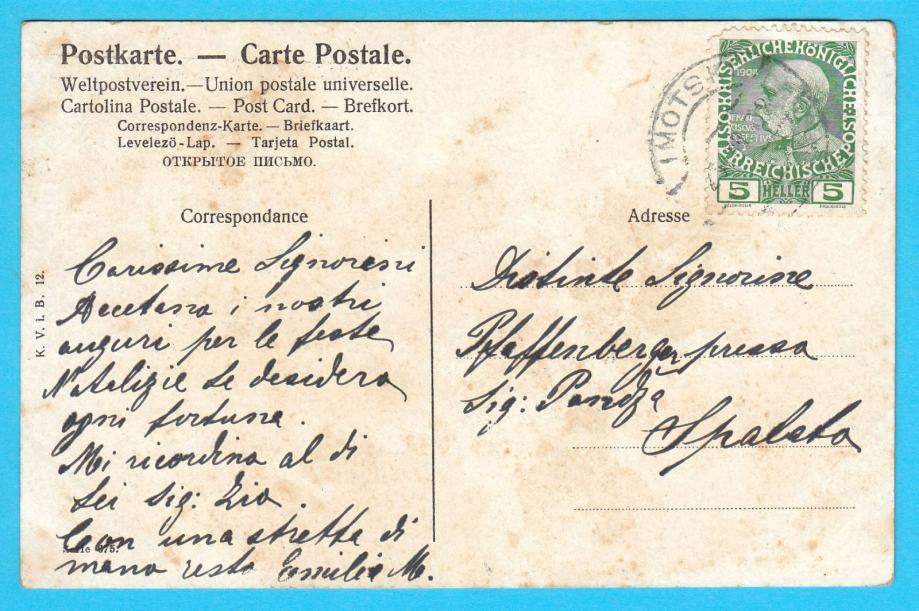 Postkarte. — Carte Postale.
Weltpostverein.—Union postale universelle.
Cartolina Postale. — Post Card. — Brefkort.
Correspondenz-Karte. — Briefkaart.
Levelező-Lap. — Tarjeta Postal.
ОТКРЫТОЕ ПИСЬМО.
IMOTSKI
KAISERLICHE KÖNIGLICHE ÖSTERREICHISCHE POST
1908
5 HELLER 5
Correspondance
Carissime Signorine
Accetano i nostri
auguri per le feste
Natalizie Le desidero
ogni fortuna.
Mi ricordino al di
Lei Sig: Zio.
Con una stretta di
mano resto Emilio M.
K. V. i. B. 12.
Serie 675.
Adresse
Distinte Signorine
Pfaffenberger presso
Sig: Pandža
Spalato